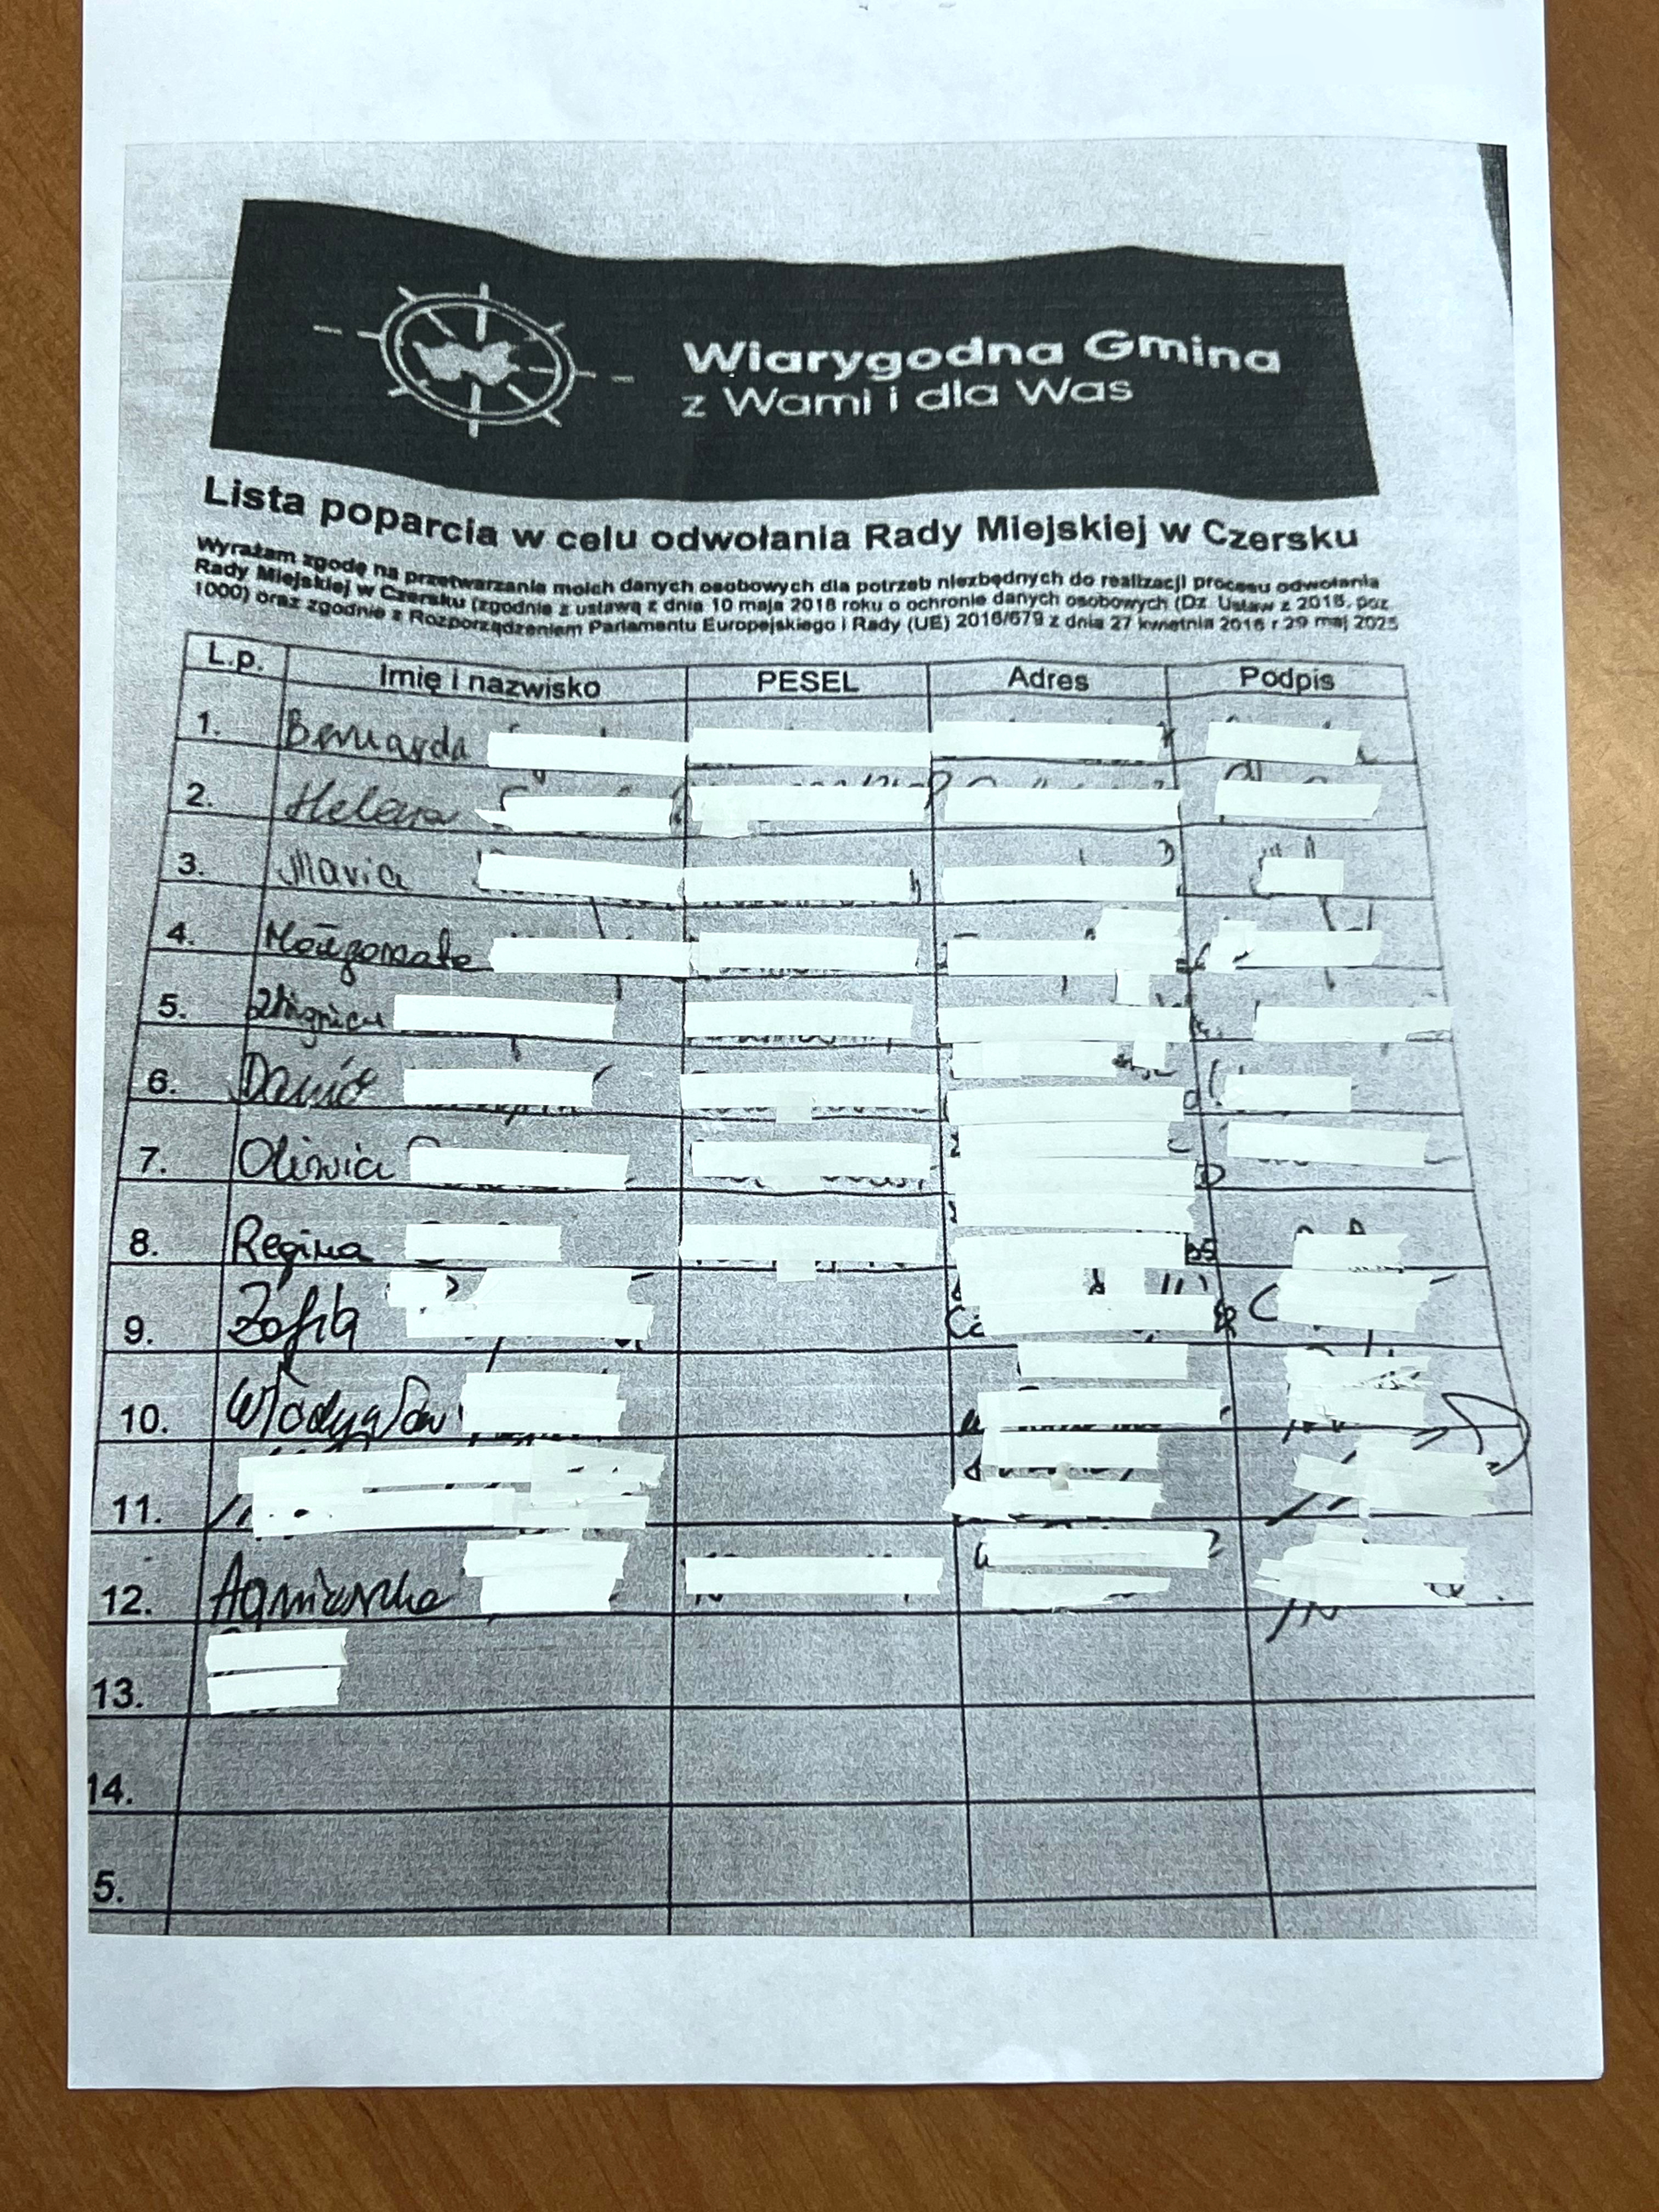 Wiarygodna Gmina
z Wami i dla Was
Lista poparcia w celu odwołania Rady Miejskiej w Czersku
Wyrażam zgodę na przetwarzanie moich danych osobowych dla potrzeb niezbędnych do realizacji procesu odwołania
Rady Miejskiej w Czersku (zgodnie z ustawą z dnia 10 maja 2018 roku o ochronie danych osobowych (Dz. Ustaw z 2018, poz
1000) oraz zgodnie z Rozporządzeniem Parlamentu Europejskiego i Rady (UE) 2016/679 z dnia 27 kwietnia 2016 r 29 maj 2025
L.p. Imię i nazwisko PESEL Adres Podpis
1. Bernarda
2. Helena
3. Maria
4. Małgorzata
5. Zbigniew
6. Dawid
7. Oliwia
8. Regina
9. Zofia
10. Władysław
11.
12. Agnieszka
13.
14.
5.